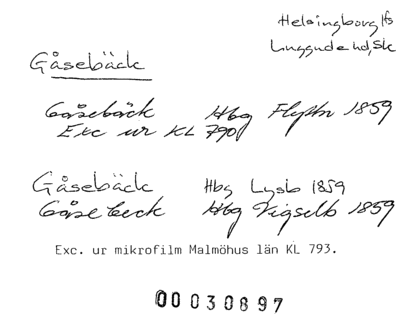 Helsingborg lfs
Luggude hd, Sk
Gåsebäck
Gåsebäck Hbg Flyttn 1859
Exc ur KL 790
Gåsebäck Hbg Lysb 1859
Gåsebeck Hbg Vigselb 1859
Exc. ur mikrofilm Malmöhus län KL 793.
00030897